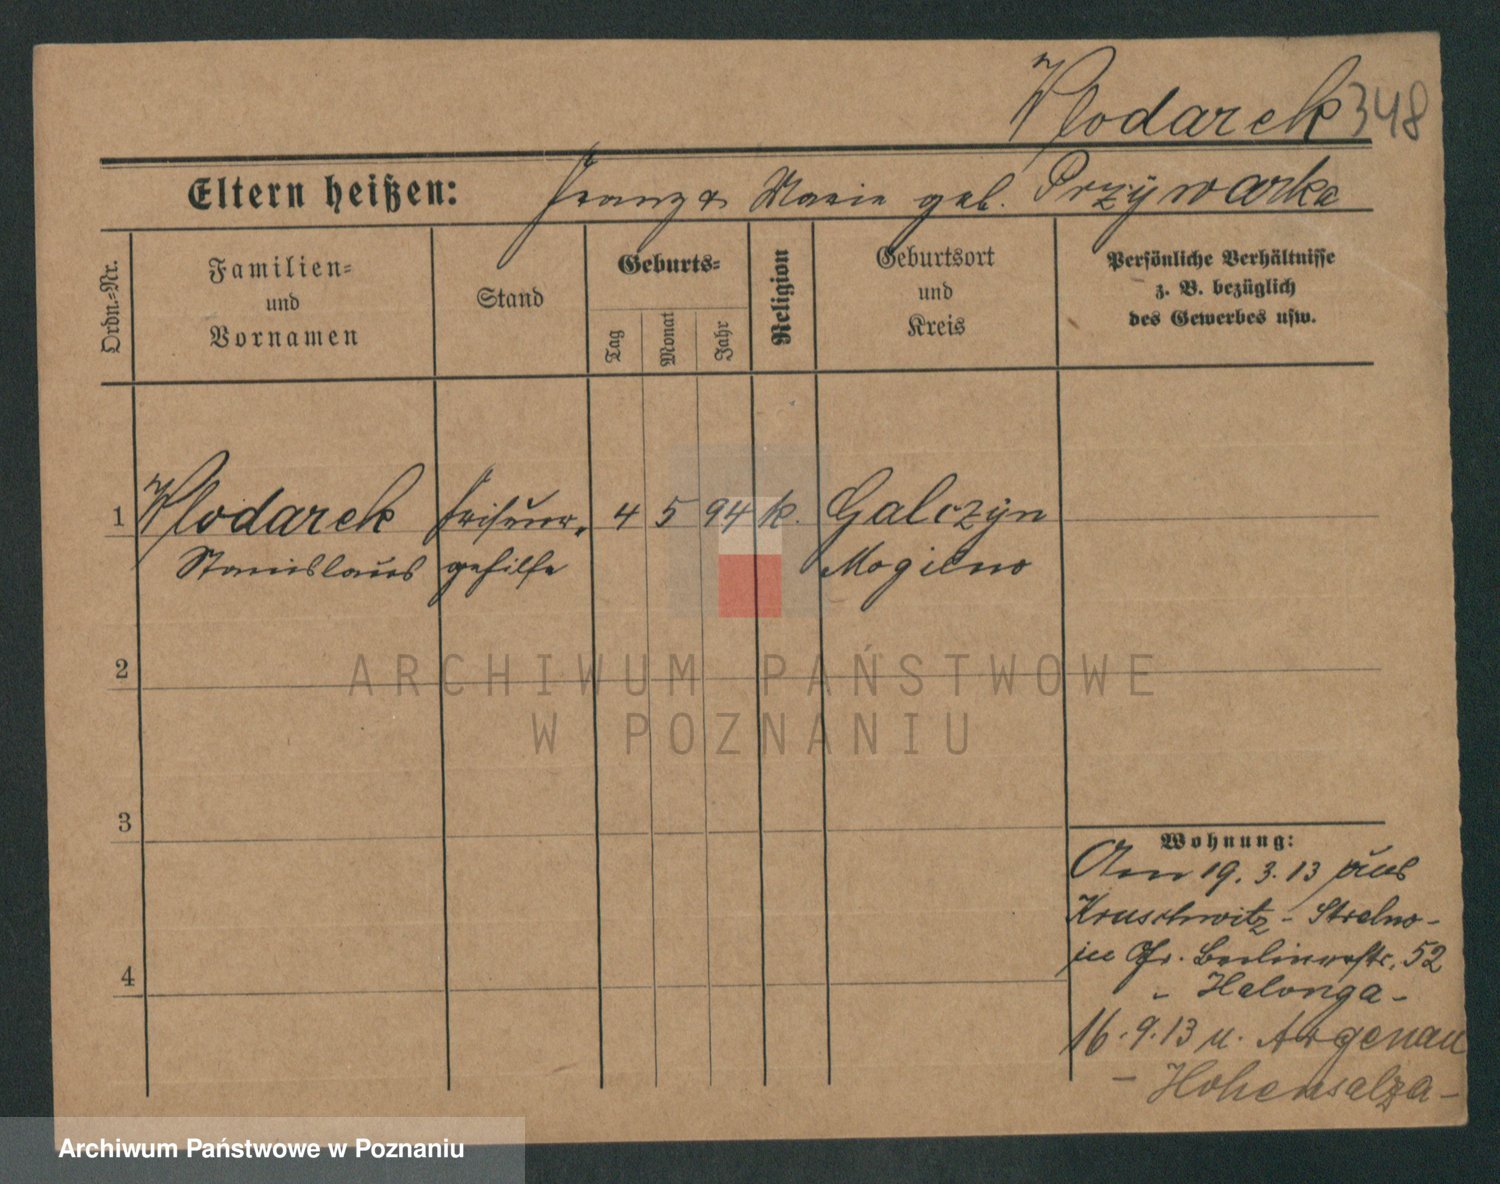 Wlodarek 348
Eltern heißen: Franz & Marie geb. Przywarka
Ordn.=Nr.
Familien=
und
Vornamen
Stand
Geburts=
Tag
Monat
Jahr
Religion
Geburtsort
und
Kreis
Persönliche Verhältnisse
z. B. bezüglich
des Gewerbes usw.
1 Wlodarek Friseur- 4 5 94 k. Galczyn
Stanislaus gehilfe Mogilno
2
ARCHIWUM PAŃSTWOWE
W POZNANIU
3
Wohnung:
Am 19. 3. 13 aus
Kruschwitz - Strelno -
in Gr. Berlinerstr. 52
- Halonga -
4
16. 9. 13 n. Argenau
- Hohensalza -
Archiwum Państwowe w Poznaniu